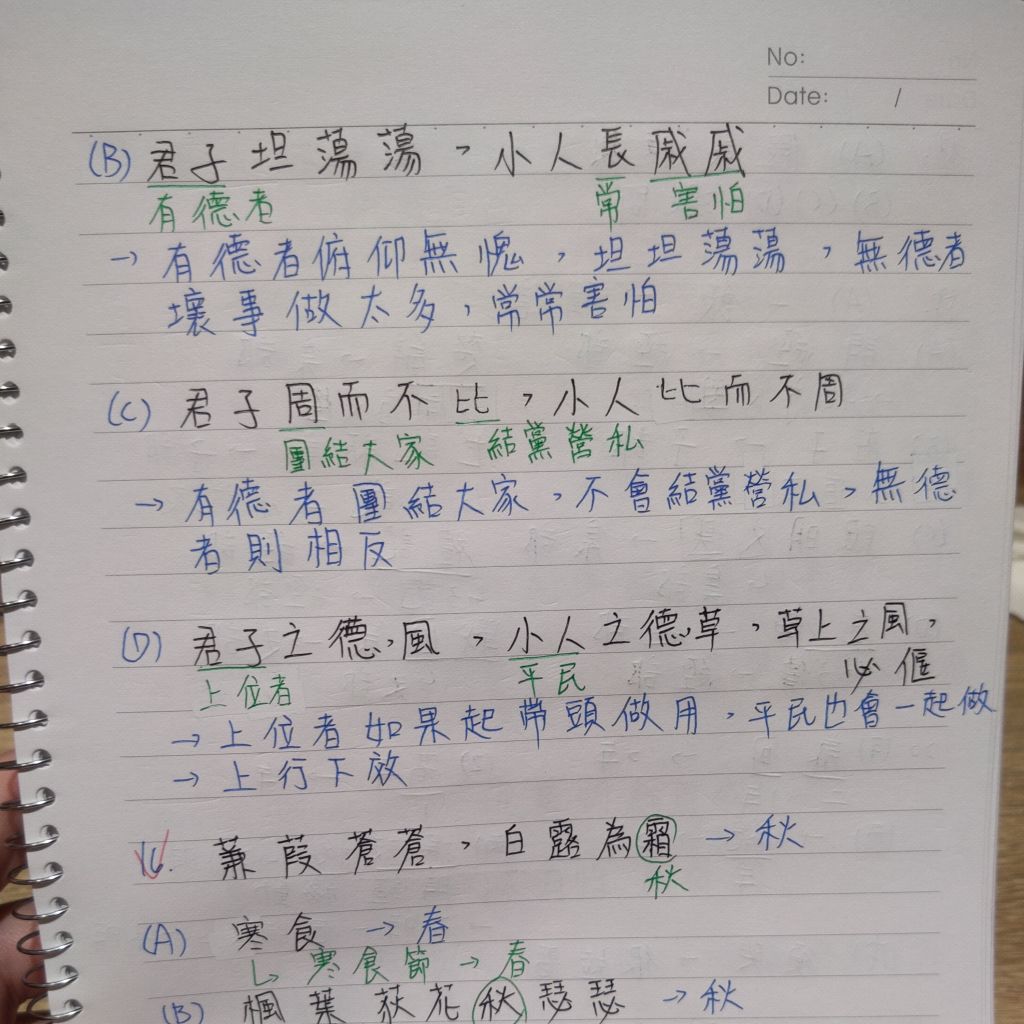 No:
Date: /
(B) 君子坦蕩蕩,小人長戚戚
有德者 常 害怕
→ 有德者俯仰無愧,坦坦蕩蕩,無德者
壞事做太多,常常害怕
(C) 君子周而不比,小人比而不周
團結大家 結黨營私
→ 有德者團結大家,不會結黨營私,無德
者則相反
(D) 君子之德,風,小人之德草,草上之風,
必偃
上位者 平民
→ 上位者如果起帶頭做用,平民也會一起做
→ 上行下效
16. 蒹葭蒼蒼,白露為霜 → 秋
秋
(A) 寒食 → 春
↳ 寒食節 → 春
(B) 楓葉荻花秋瑟瑟 → 秋